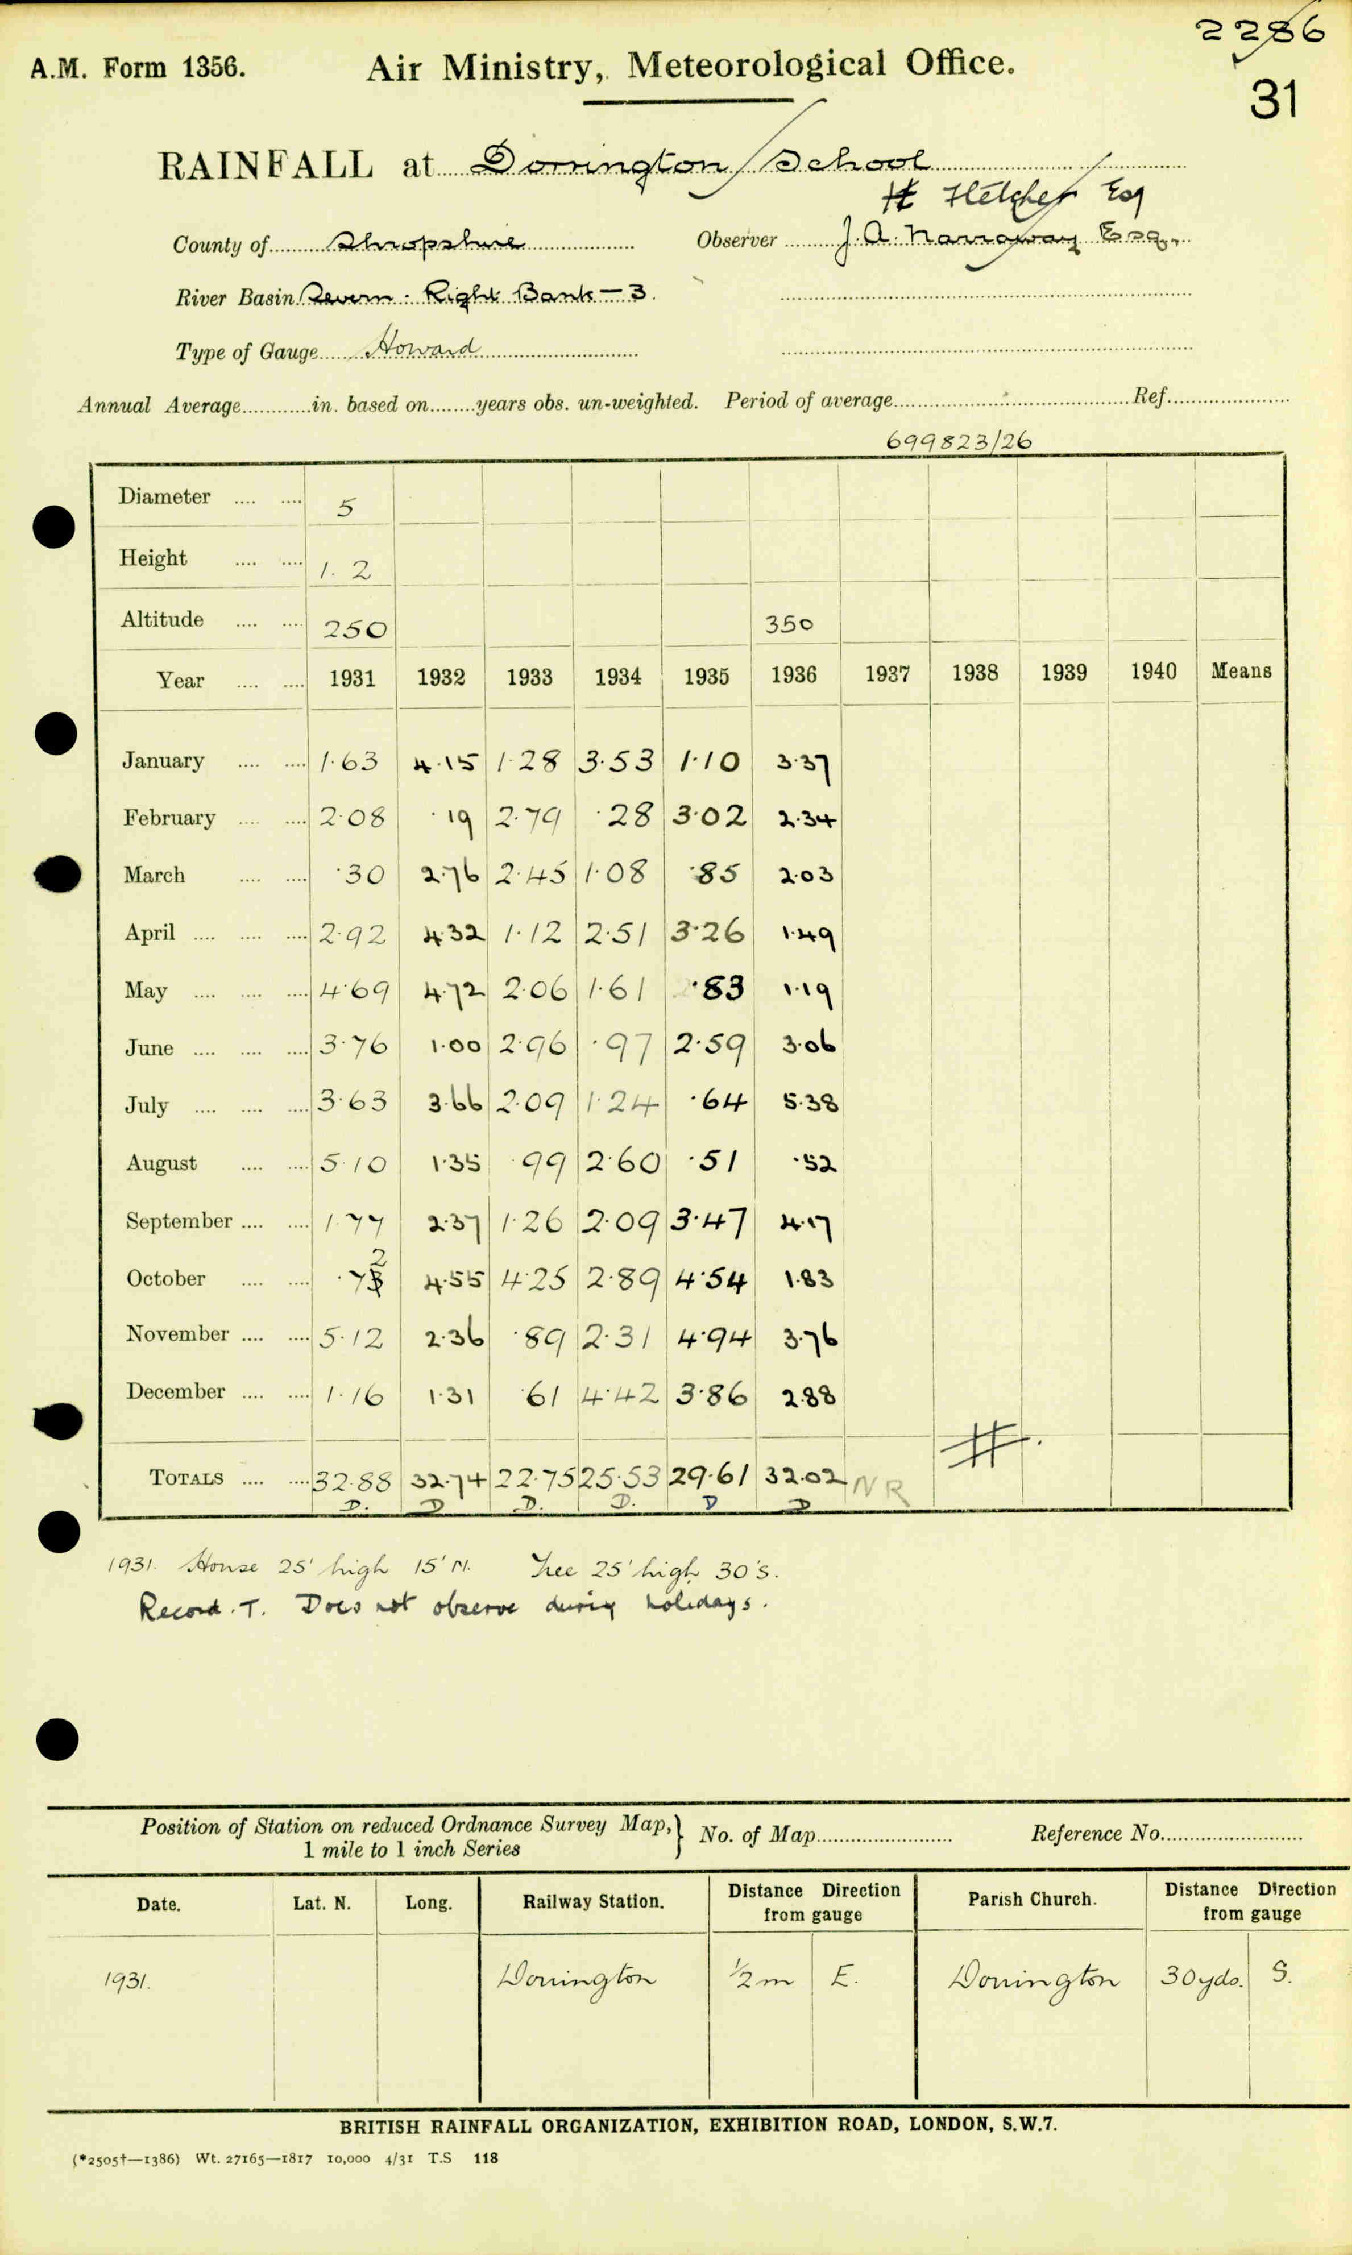 2286
A.M. Form 1356. Air Ministry, Meteorological Office.
31
RAINFALL at Dorrington School
H Fletcher Esq
County of Shropshire Observer J. A. Narraway Esq.
River Basin Severn - Right Bank - 3.
Type of Gauge Howard
Annual Average in. based on years obs. un-weighted. Period of average Ref.
699823/26
Diameter 5
Height 1. 2
Altitude 250 350
Year 1931 1932 1933 1934 1935 1936 1937 1938 1939 1940 Means
January 1.63 4.15 1.28 3.53 1.10 3.37
February 2.08 .19 2.79 .28 3.02 2.34
March .30 2.76 2.45 1.08 .85 2.03
April 2.92 4.32 1.12 2.51 3.26 1.49
May 4.69 4.72 2.06 1.61 .83 1.19
June 3.76 1.00 2.96 .97 2.59 3.06
July 3.63 3.66 2.09 1.24 .64 5.38
August 5.10 1.35 .99 2.60 .51 .52
September 1.77 2.37 1.26 2.09 3.47 4.17
October .72 4.55 4.25 2.89 4.54 1.83
November 5.12 2.36 .89 2.31 4.94 3.76
December 1.16 1.31 .61 4.42 3.86 2.88
TOTALS 32.88 32.74 22.75 25.53 29.61 32.02 NR
D. D D. D. D D
1931. House 25' high 15' N. Tree 25' high 30' S.
Record. T. Does not observe during holidays.
Position of Station on reduced Ordnance Survey Map, } No. of Map Reference No.
1 mile to 1 inch Series
Date. Lat. N. Long. Railway Station. Distance Direction from gauge Parish Church. Distance Direction from gauge
1931. Dorrington 1/2 m E. Dorrington 30 yds. S.
BRITISH RAINFALL ORGANIZATION, EXHIBITION ROAD, LONDON, S.W.7.
(*2505†—1386) Wt. 27165—1817 10,000 4/31 T.S 118